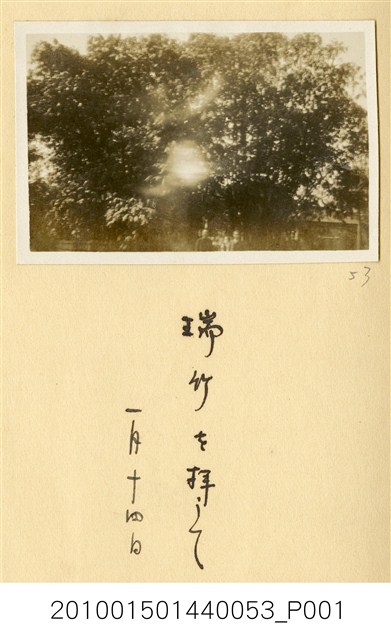 53
瑞竹を拝して
一月十四日
201001501440053_P001